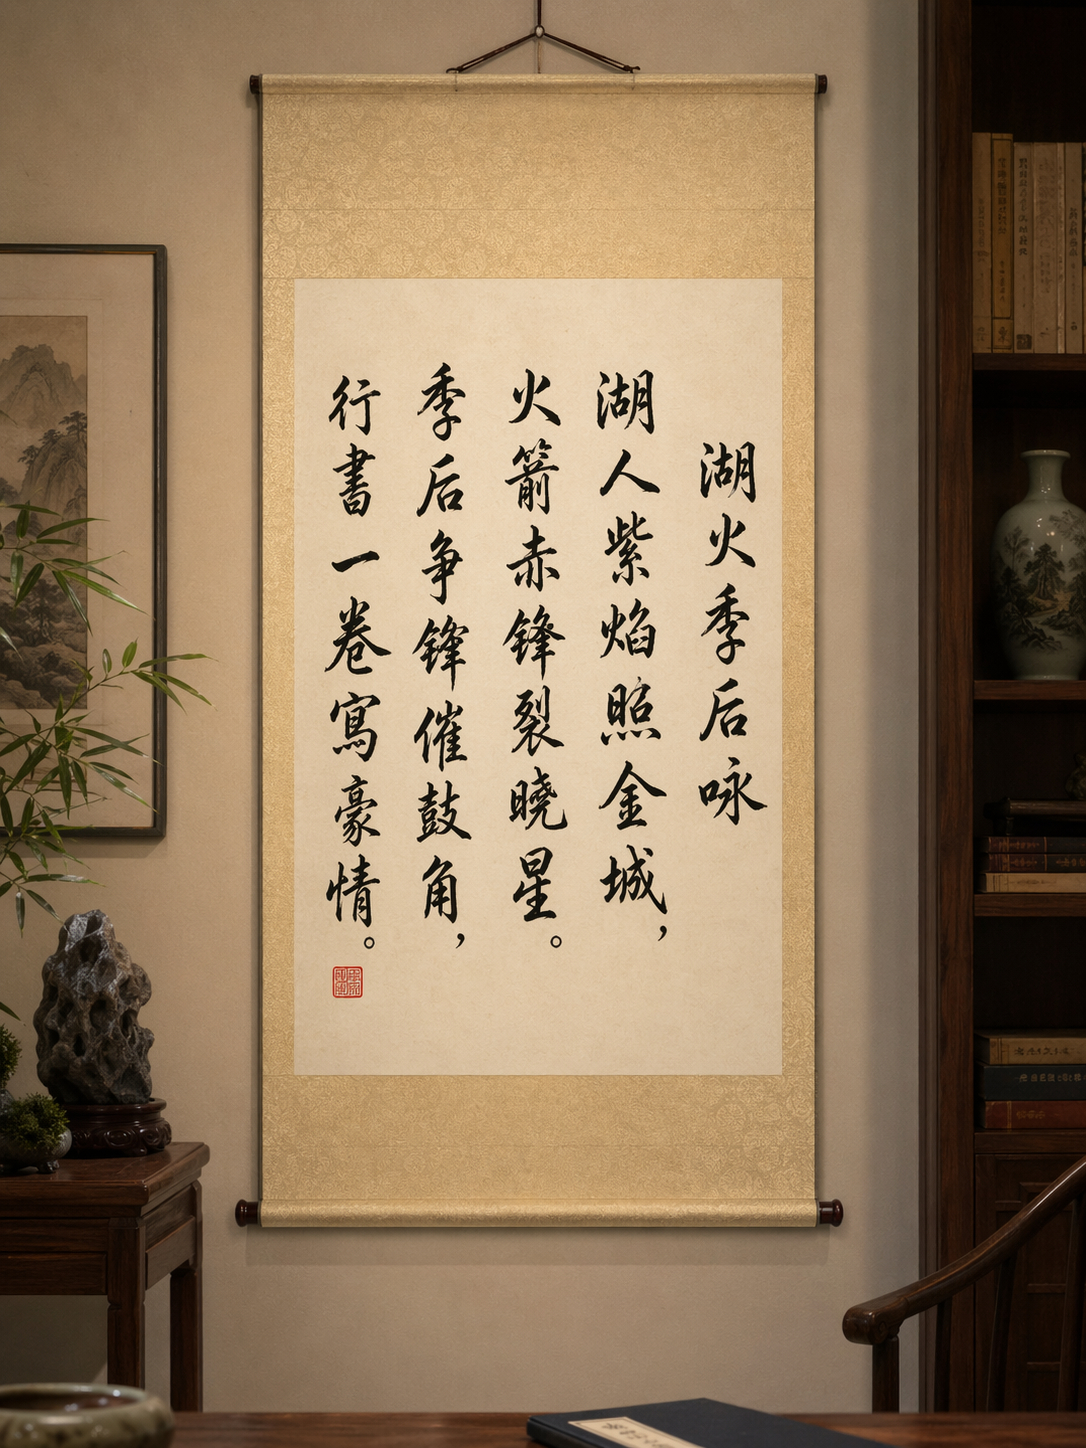 湖火季后咏
湖人紫焰照金城，
火箭赤锋裂晓星。
季后争锋催鼓角，
行書一卷寫豪情。